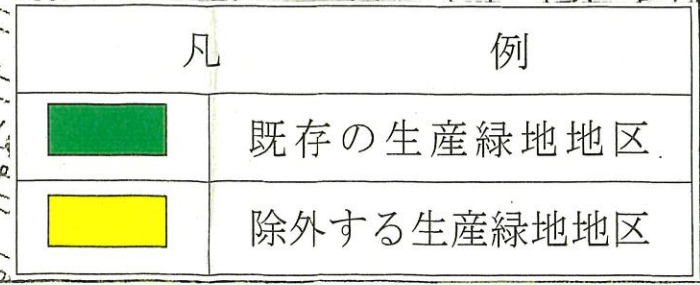 凡 例
既存の生産緑地地区
除外する生産緑地地区